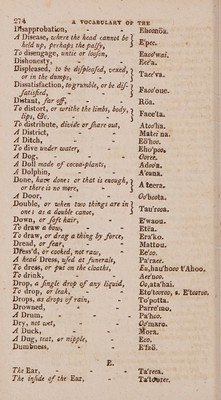 274 A VOCABULARY OF THE
Disapprobation, - - Ehoonóa.
A Disease, where the head cannot be
held up, perhaps the palsy, } E'pee.
To disengage, untie or loosen, - Eaoo'wai.
Dishonesty, - - - Eee'a.
Displeased, to be displeased, vexed,
or in the dumps, } Taee'va.
Dissatisfaction, to grumble, or be dis-
satisfied, - - } Faoo'oue.
Distant, far off, - - Róa.
To distort, or writhe the limbs, body,
lips, &c. - - } Faee'ta.
To distribute, divide or share out, Atoo'ha.
A District, - - - Matei na.
A Ditch, - - - Eö'hoo.
To dive under water, - - Eho'poo.
A Dog, - - - Ooree.
A Doll made of cocoa-plants, - Adoo'a.
A Dolphin, - - - A'ouna.
Done, have done; or that is enough,
or there is no more, - } A teera.
A Door, - - - Oo'boota.
Double, or when two things are in
one; as a double canoe, } Tau'rooa.
Down, or soft hair, - - E'waou.
To draw a bow, - - Etëa.
To draw, or drag a thing by force, Era'ko.
Dread, or fear, - - Mattou.
Dress'd, or cooked, not raw, - Ee'oo.
A head Dress, used at funerals, - Pa'raee.
To dress, or put on the cloaths, Eu,hau'hooo t'Ahoo.
To drink, - - - Aee'noo.
Drop, a single drop of any liquid, Oo,ata'hai.
To drop, or leak, - Eto'tooroo, s. E'tooroo.
Drops, as drops of rain, - To'potta.
Drowned, - - - Parre'mo.
A Drum, - - - Pa'hoo.
Dry, not wet, - - - Oo'maro.
A Duck, - - - Mora.
A Dug, teat, or nipple, - Eoo.
Dumbness, - - - E'faö.
E.
The Ear, - - - Ta'reea.
The inside of the Ear, - Ta'tooree.